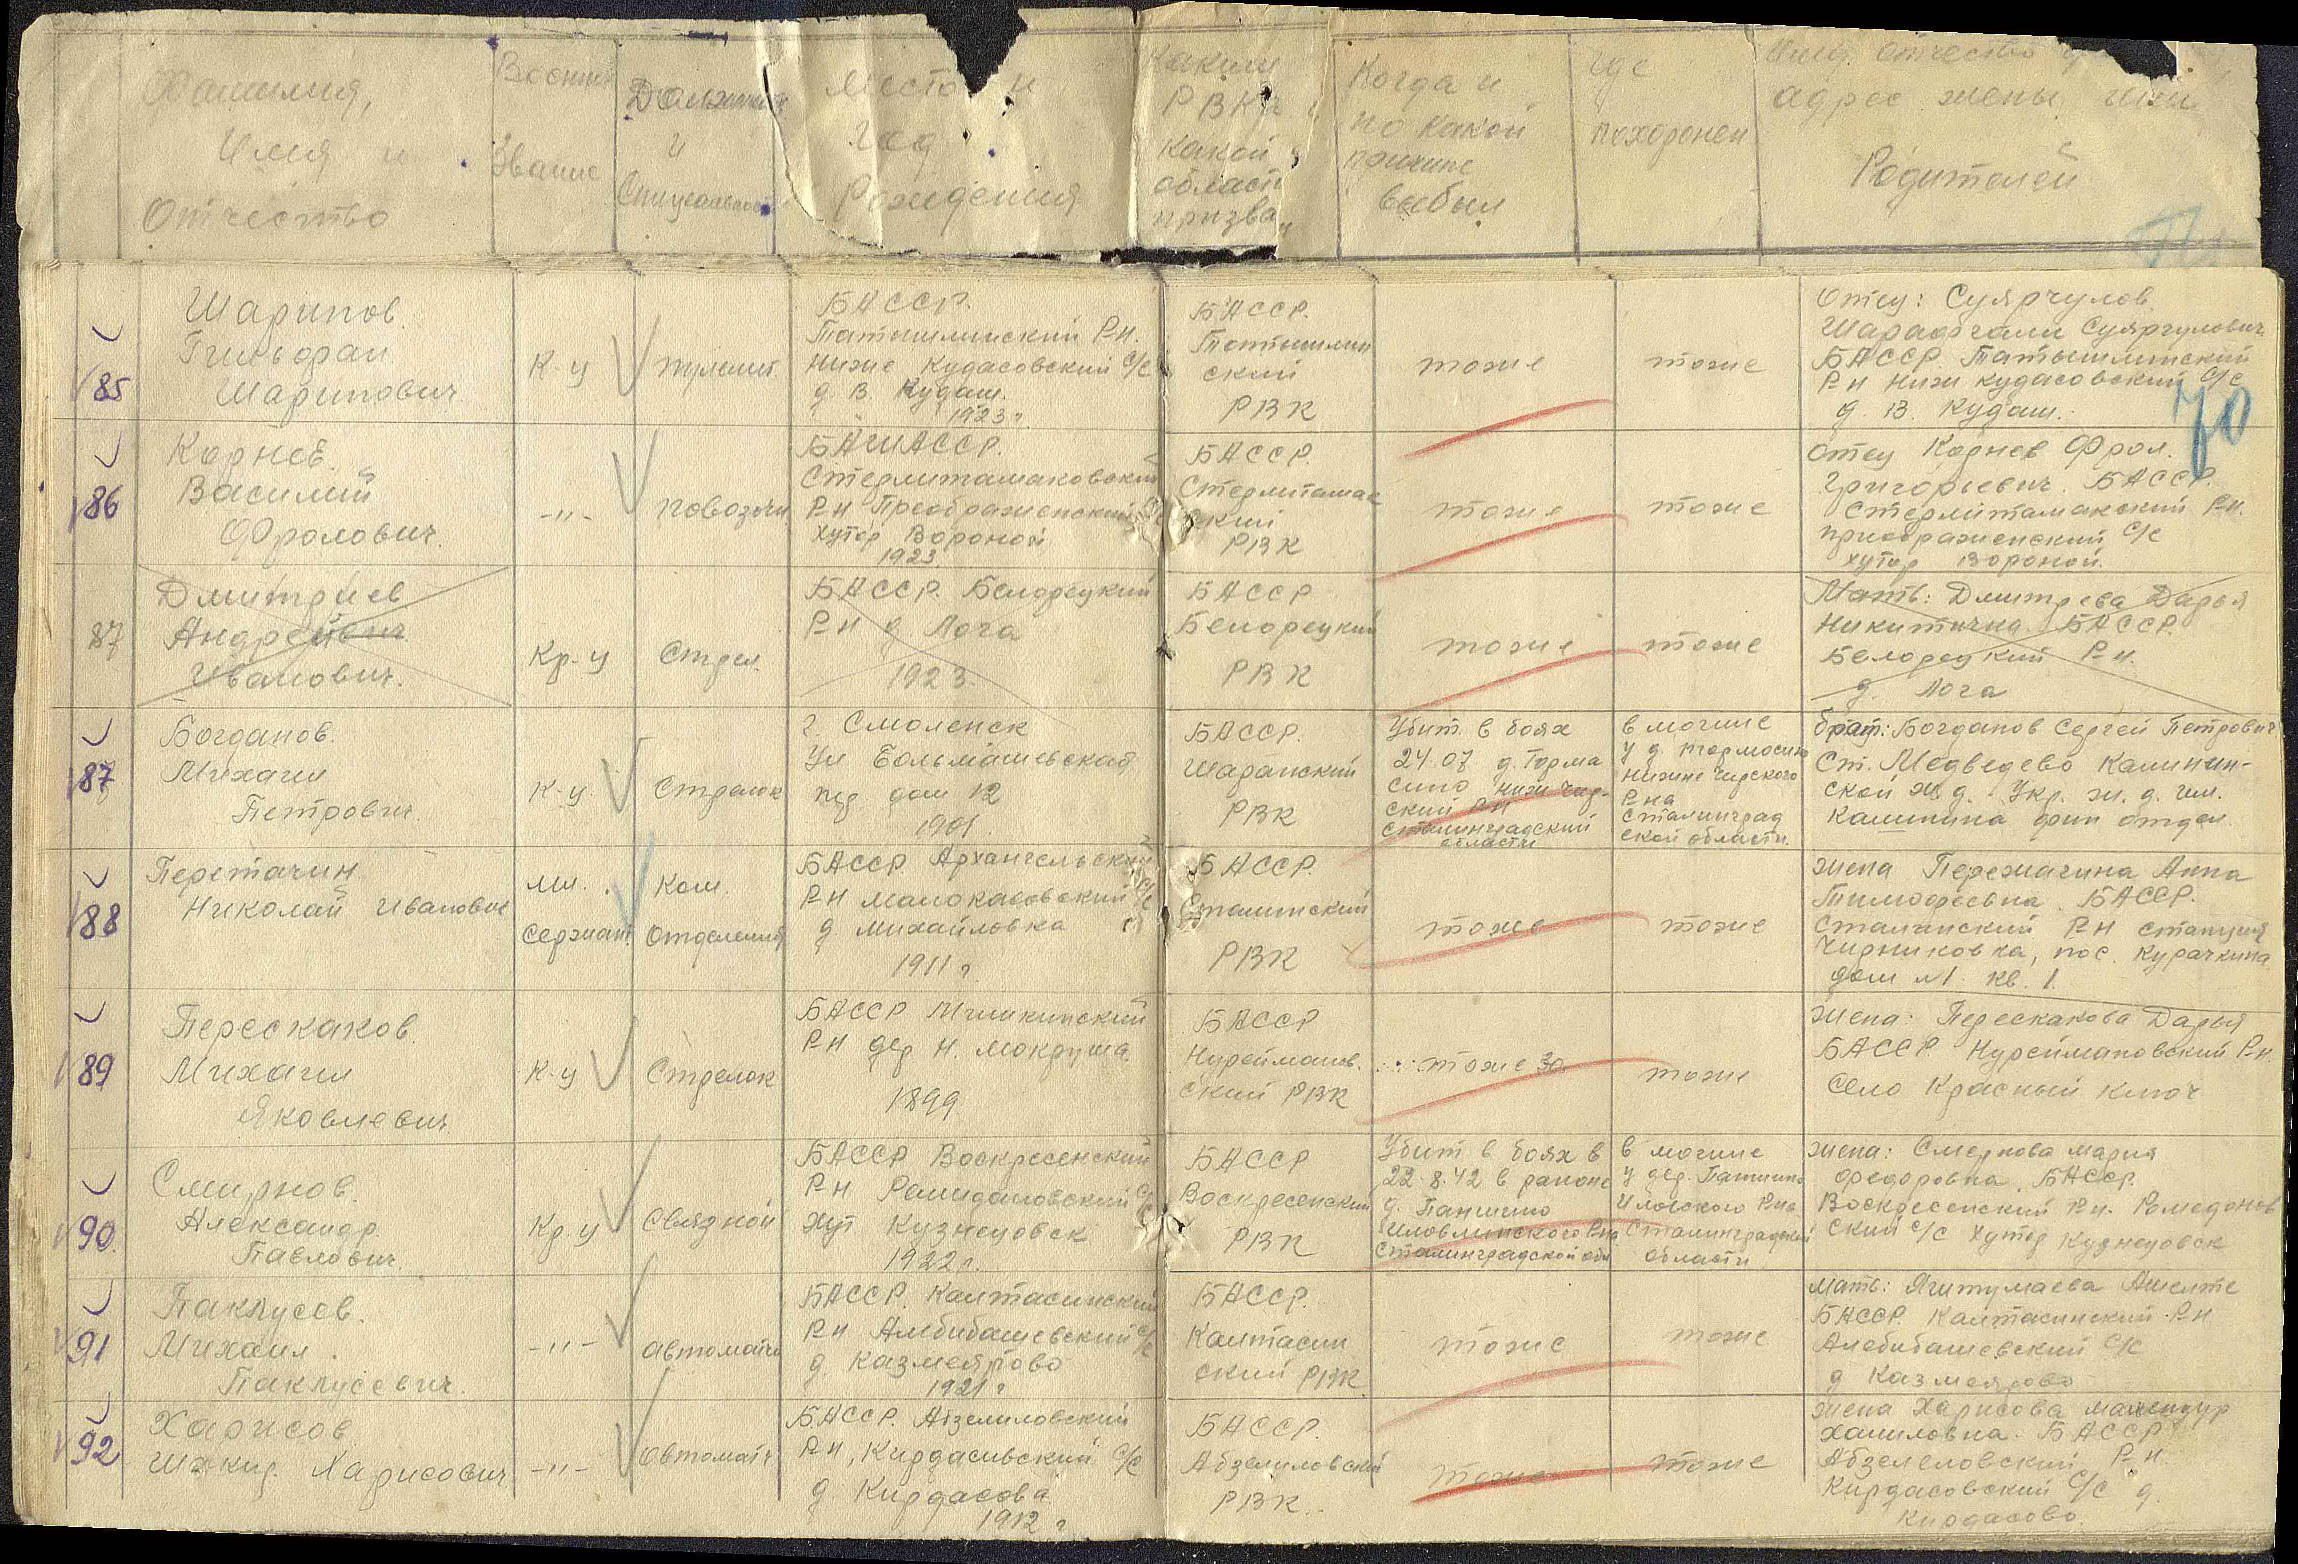 Фамилия,
Имя и
Отчество
Военн
Звание
Должност
и
Специальность
Место и
год
Рождения
Каким
РВК и
какой
област
призва
Когда и
по какой
причине
выбыл
где
похоронен
Имя, отчество
адрес жены, или
Родителей
85
Шарипов
Шарипович
К-ц
пулемет.
БАССР.
Татышлинский Р-н.
Ниже Кудасовский с/с
д. В. Кудаш.
1923 г.
БАССР.
Татышлин
ский
РВК
тоже
тоже
Отец: Суярчулов
Шарафгали Суяргулович
БАССР. Татышлинский
Р-н Ниж Кудасовский с/с
д. В. Кудаш.
70
86
Корнев.
Василий
Фролович.
-"-
повозочн
БАШАССР.
Стерлитамаковский
Р-н Преображенский с/с
хутор Вороной
1923.
БАССР.
Стерлитамак
ский
РВК
тоже
тоже
отец Корнев Фрол.
Григорьевич. БАССР.
Стерлитамакский Р-н.
приображенский с/с
хутор Вороной.
87
Дмитриев
Андреевич
Иванович.
Кр-ц
Стрел.
БАССР. Белорецкий
Р-н д Лога
1923.
БАССР
Белорецкий
РВК
тоже
тоже
Мать: Дмитрева Дарья
Никитична. БАССР.
Белорецкий Р-н.
д. Лога
87
Богданов.
Михаил
Петрович.
К-ц.
Стрелок
г. Смоленск
Ул Больмашевская
пер дом 12
1901.
БАССР.
Шаранский
РВК
Убит в боях
24.07 д. Торма
сино Ниж Чир-
ский Р-н
Сталинградский
области
в могиле
у д. Тормосино
Нижне Чирского
Р-на
Сталинград
ской области.
брат: Богданов Сергей Петрович
Ст. Медведево Калинин-
ской ж д. Укр. ж. д. им.
Калинина фин отдел.
88
Перетачин
Николай Иванович
Мл.
Сержант.
Ком.
Отделения
БАССР Архангельский
Р-н Малокасовский с/с
д Михайловка
1911 г
БАССР.
Сталинский
РВК
тоже
тоже
жена Перетагина Анна
Тимофеевна. БАССР.
Сталинский Р-н станция
Чирниковка, пос. Курачкина
дом №1. кв. 1.
89
Перескаков.
Михаил
Яковлевич
К-ц
Стрелок
БАССР Мишкинский
Р-н дер Н. Мокруша.
1899
БАССР
Нурейманов.
ский РВК
тоже
тоже
жена: Перескакова Дарья
БАССР. Нуреймановский Р-н.
Село Красный ключ
90.
Смирнов.
Александр.
Павлович.
Кр-ц
Связной
БАССР Воскресенский
Р-н Ромидановский с/с
хут Кузнецовск
1922 г.
БАССР
Воскресенский
РВК
Убит в боях в
22.8.42 в районе
д. Паншино
Иловлинского Р-на
Сталинградской обл
в могиле
у дер. Паншино
Иловского Р-на
Сталинградской
области
жена: Смернова Мария
Федоровна. БАССР.
Воскресенский Р-н. Ромедонов
ский с/с хутор Кузнецовск
91
Паклусев.
Михаил.
Паклусевич.
-"-
автоматч
БАССР. Калтасинский
Р-н Алебибашевский с/с
д Казмеярово
1921 г
БАССР.
Калтасин
ский РВК
тоже
тоже
мать: Ягитумаева
БАССР. Калтасинский Р-н
Алебибашевский с/с
д Казмеярово
92
Харисов
Шакир. Харисович
-"-
автоматч
БАССР. Абзелиловский
Р-н, Кирдасивский с/с
д Кирдасова
1912 г
БАССР.
Абзелиловский
РВК.
тоже
тоже
жена Харисова
Халиловна. БАССР
Абзелеловский Р-н
Кирдасовский с/с д.
Кирдасово.